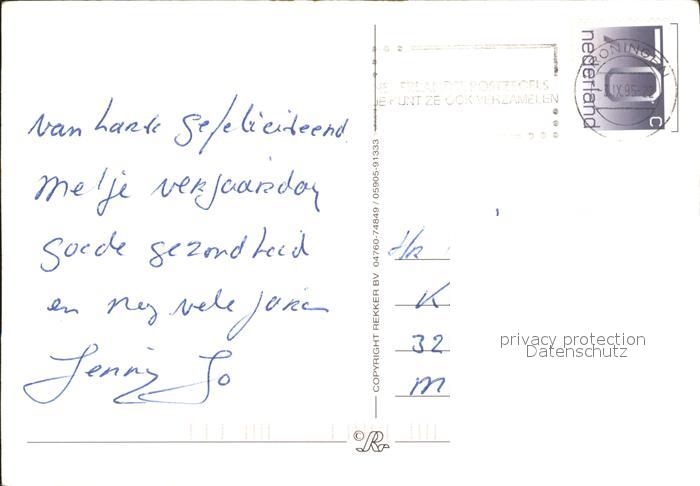 van harte gefeliciteerd
met je verjaardag
goede gezondheid
en nog vele jaren
Jenny Jo
COPYRIGHT REKKER BV 04760-74849 / 05905-91333
© R
POSTZEGELS
JE KUNT ZE OOK VERZAMELEN
nederland
c
IX.95
K
32
M
privacy protection
Datenschutz